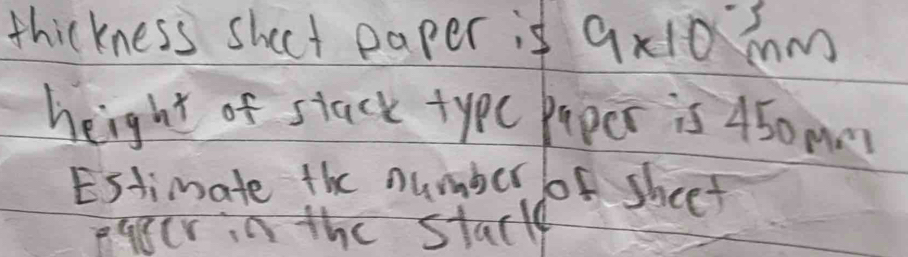 thickness sheet paper is 9x10⁻³ mm
height of stack type paper is 450 mm
Estimate the number of sheet
paper in the stack